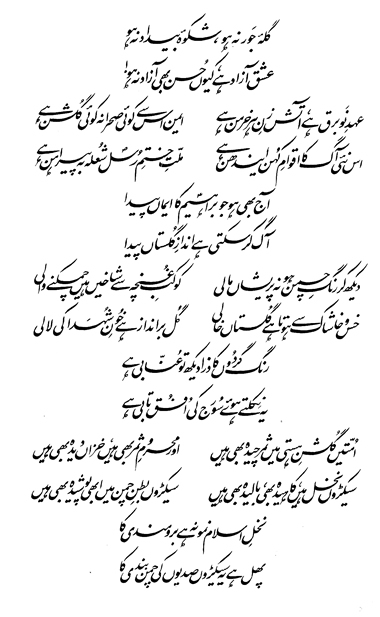 گلۂ جور نہ ہو، شکوۂ بیداد نہ ہو
عشق آزاد ہے، کیوں حسن بھی آزاد نہ ہو!
عہدِ نو برق ہے، آتش زنِ ہر خرمن ہے
ایمن اس سے کوئی صحرا نہ کوئی گلشن ہے
اس نئی آگ کا اقوامِ کہن ایندھن ہے
ملتِ ختمِ رسل شعلہ بہ پیراہن ہے
آج بھی ہو جو براہیم کا ایماں پیدا
آگ کر سکتی ہے اندازِ گلستاں پیدا
دیکھ کر رنگِ چمن ہو نہ پریشاں مالی
کوکبِ غنچہ سے شاخیں ہیں چمکنے والی
خس و خاشاک سے ہوتا ہے گلستاں خالی
گل بر انداز ہے خونِ شہدا کی لالی
رنگ گردوں کا ذرا دیکھ تو عنّابی ہے
یہ نکلتے ہوئے سورج کی افق تابی ہے
امتیں گلشنِ ہستی میں ثمر چیدہ بھی ہیں
اور محرومِ ثمر بھی ہیں، خزاں دیدہ بھی ہیں
سیکڑوں نخل ہیں، کاہیدہ بھی، بالیدہ بھی ہیں
سیکڑوں بطنِ چمن میں ابھی پوشیدہ بھی ہیں
نخلِ اسلام نمونہ ہے برومندی کا
پھل ہے یہ سیکڑوں صدیوں کی چمن بندی کا